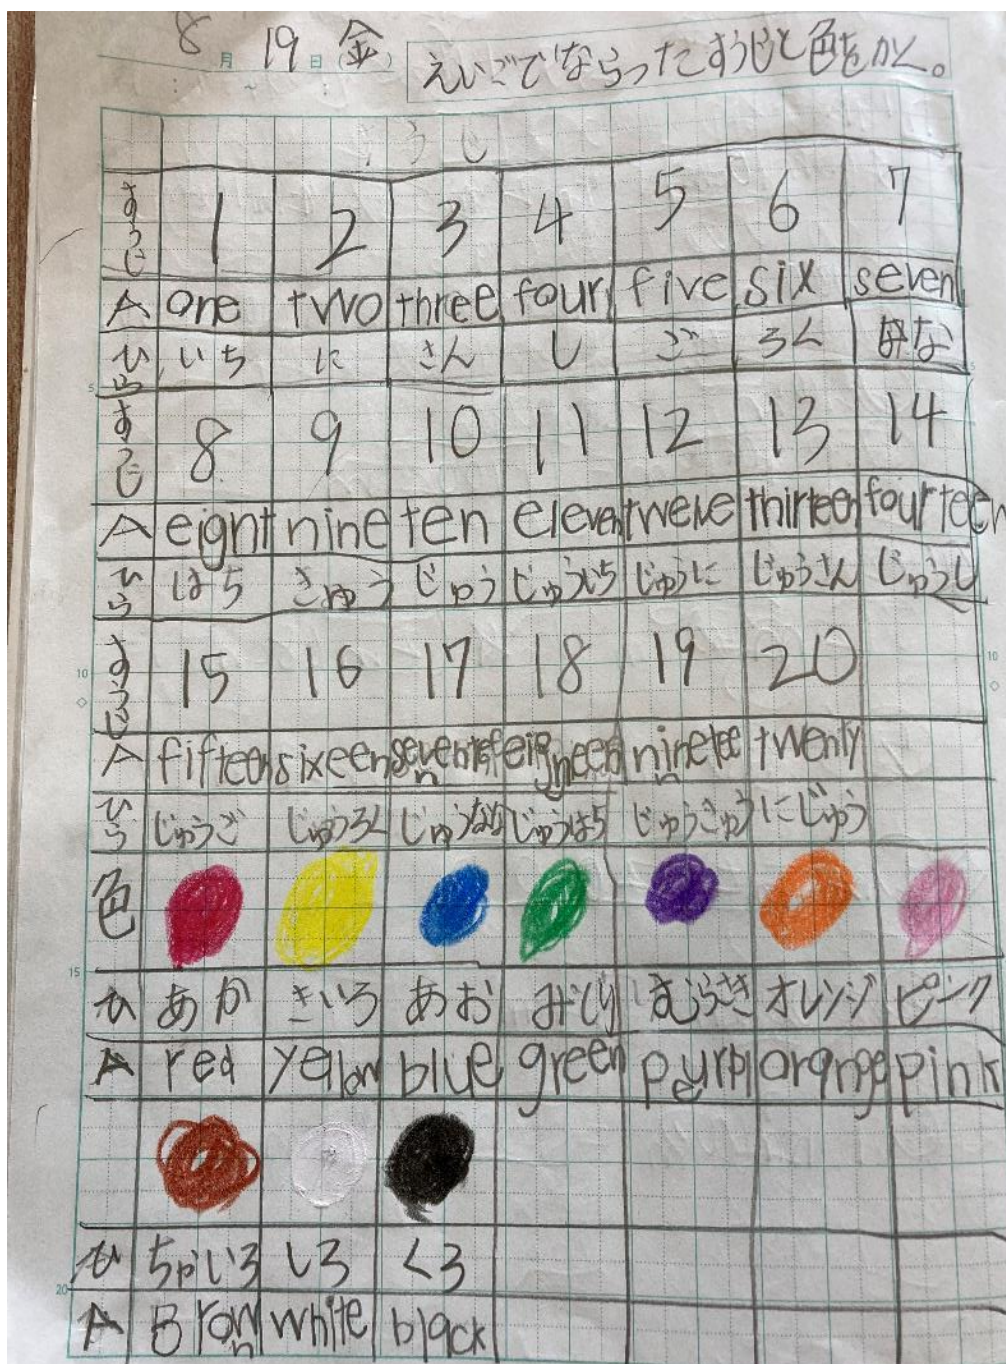 8月19日(金)
えいごでならったすうじと色をかく。
すうじ
すうじ 1 2 3 4 5 6 7
A one two three four five six seven
ひら いち に さん し ご ろく なな
すうじ 8 9 10 11 12 13 14
A eight nine ten eleven twelve thirteen fourteen
ひら はち きゅう じゅう じゅういち じゅうに じゅうさん じゅうし
すうじ 15 16 17 18 19 20
A fifteen sixeen ninetee twenty
ひら じゅうご じゅうろく じゅうなな じゅうはち じゅうきゅう にじゅう
色
ひ あか きいろ あお みどり むらさき オレンジ ピンク
A red yellow blue green purple orange pink
ひ ちゃいろ しろ くろ
A Brown white black
5
10
10
15
20